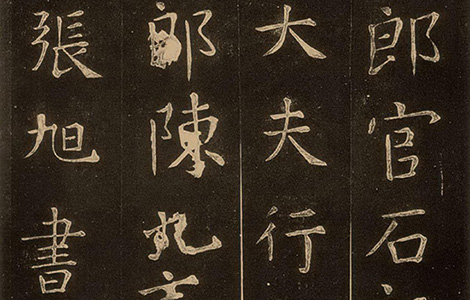 郎官石
大夫行
郎陳九
張旭書